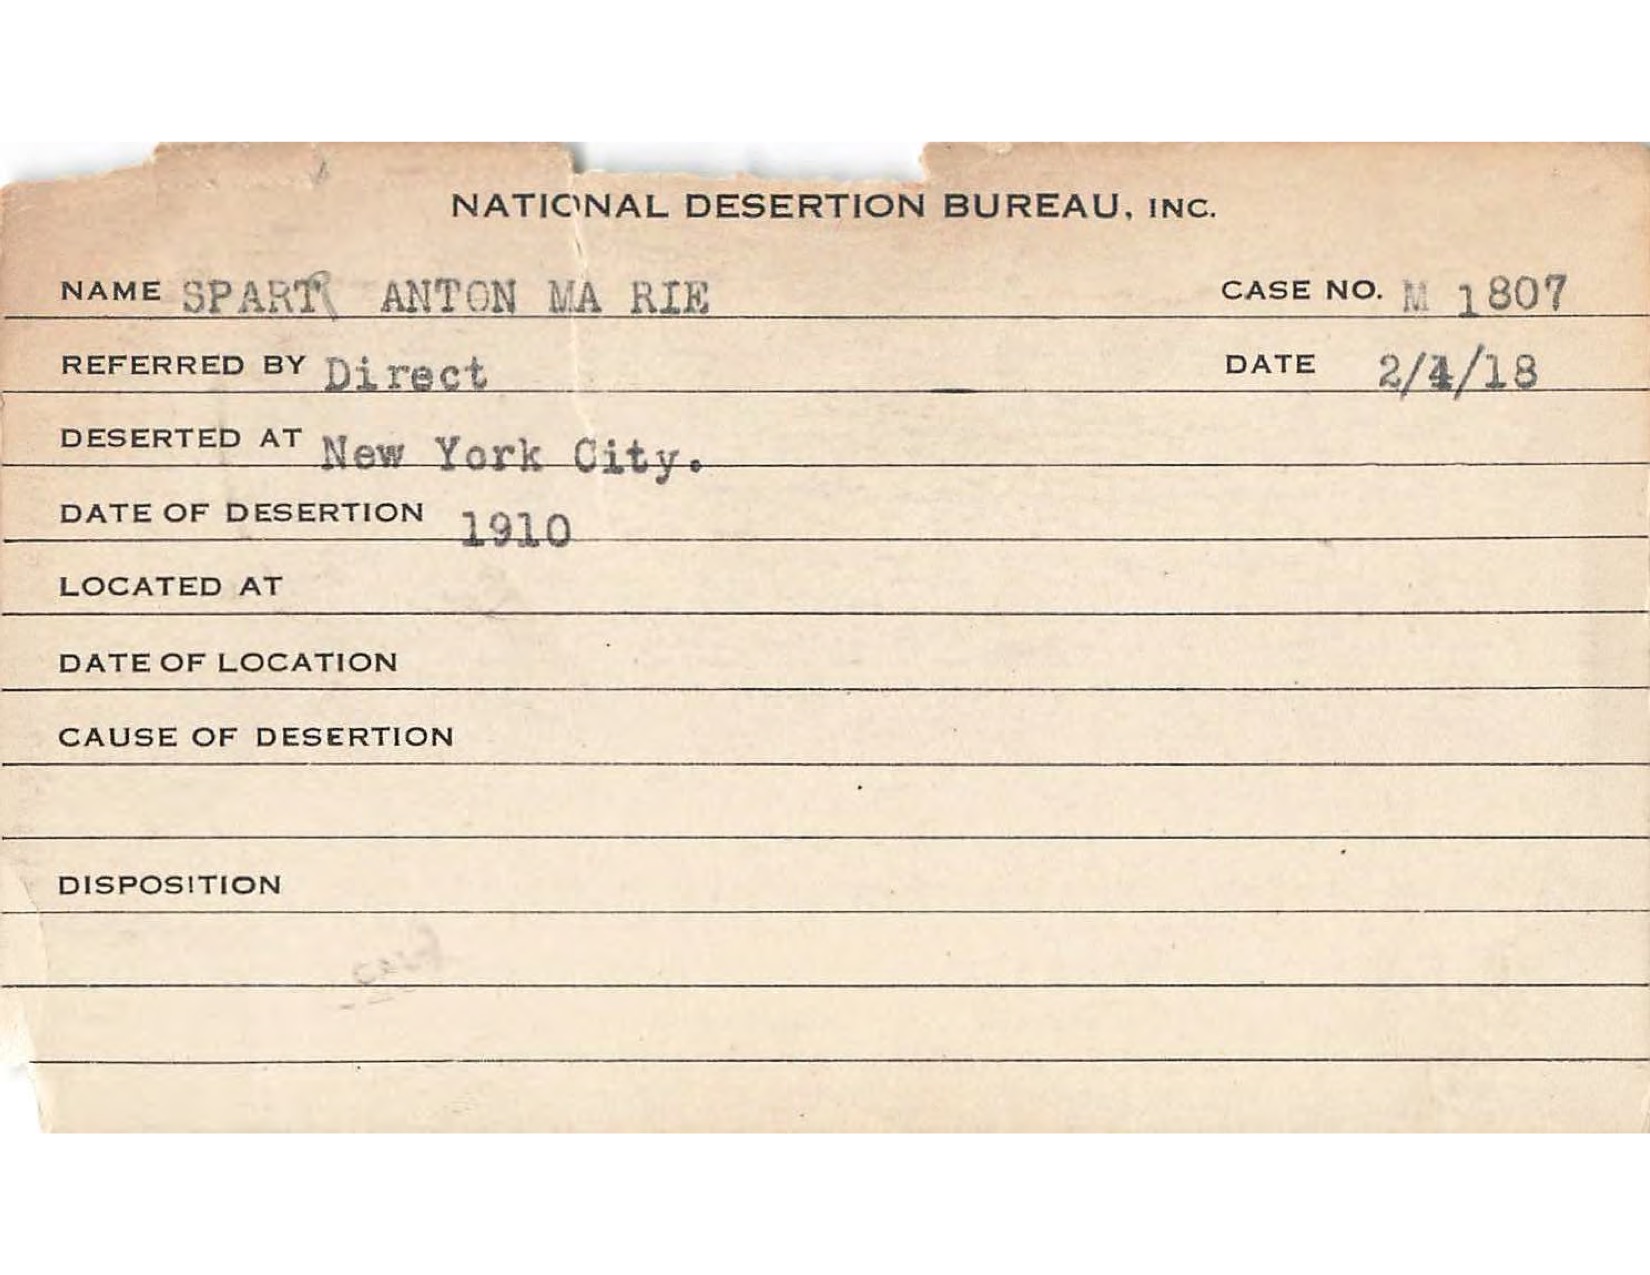 NATIONAL DESERTION BUREAU, INC.
NAME SPART ANTON MA RIE CASE NO. M 1807
REFERRED BY Direct DATE 2/4/18
DESERTED AT New York City.
DATE OF DESERTION 1910
LOCATED AT
DATE OF LOCATION
CAUSE OF DESERTION
DISPOSITION